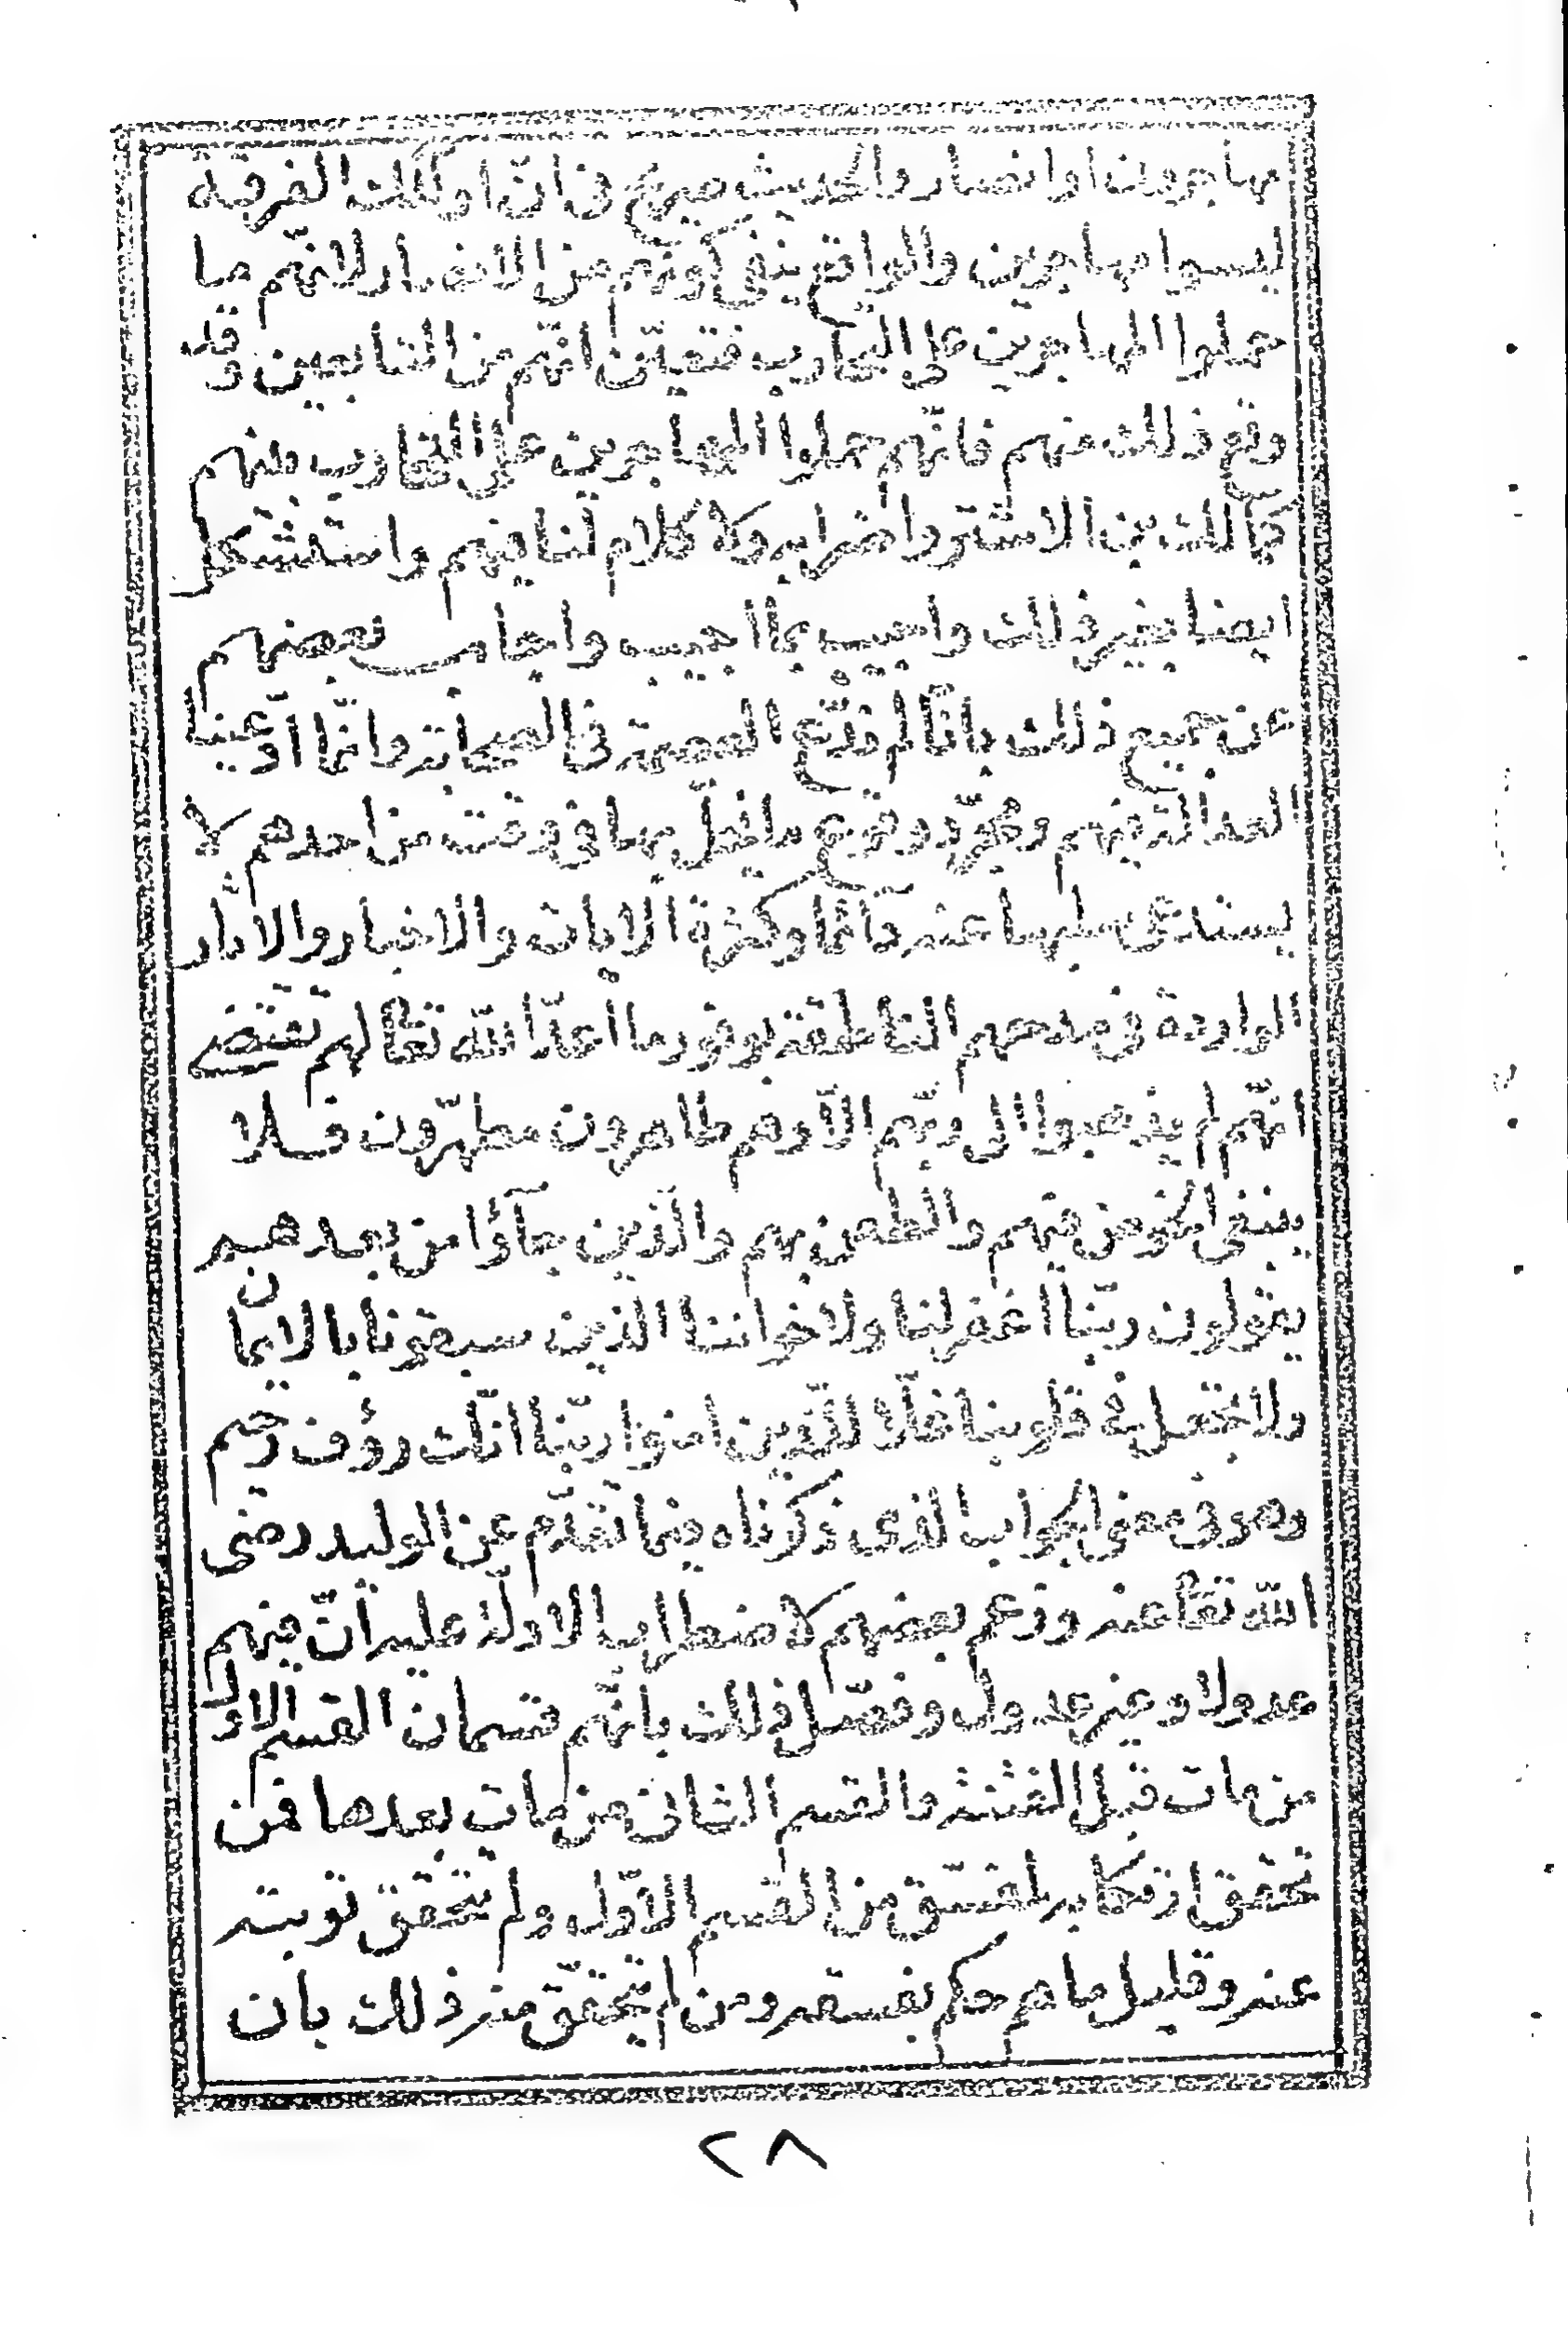 مهاجرون او انصار والحديث صريح في ان اولئك الفرقة
ليسوا مهاجرين والواقع ينفى كونهم من الانصار لانهم ما
حملوا المهاجرين على التحارب فتعين انهم من التابعين وقد
وقع ذلك منهم فانهم حملوا المهاجرين على التحارب منهم
كمالك بن الاشتر واضرابه ولا كلام لنا فيهم واستشكل
ايضا بغير ذلك واجيب بما اجيب واجاب بعضهم
عن جميع ذلك بانا لم ندّع العصمة في الصحابة وانّما ادّعينا
العدالة فيهم ومجرّد وقوع ما يخلّ بها في وقت من احدهم لا
يستدعى سلبها عنه دائما وكثرة الايات والاخبار والاثار
الواردة في مدحهم الناطقة بوفور ما اعدّ الله تعالى لهم تقتضى
انّهم لم يذهبوا الى ربّهم الّا وهم طاهرون مطهّرون فلا
ينبغى الخوض فيهم والطعن بهم والّذين جآؤا من بعدهم
يقولون ربّنا اغفر لنا ولاخواننا الّذين سبقونا بالايمان
ولا تجعل في قلوبنا غلّا للّذين امنوا ربّنا انّك رؤف رحيم
وهو في معنى الجواب الذى ذكرناه فيما تقدّم عن الوليد رضى
الله تعالى عنه وزعم بعضهم لاضطراب الادلة عليه أنّ فيهم
عدولا وغير عدول وفصّل ذلك بانّهم قسمان القسم الاول
من مات قبل الفتنة والقسم الثانى من مات بعدها فمن
تحقق ارتكابه لمفسّق من القسم الاوّل ولم تتحقق توبته
عنه وقليل ما هم حكم بفسقه ومن لم يتحقّق منه ذلك بان
٢٨